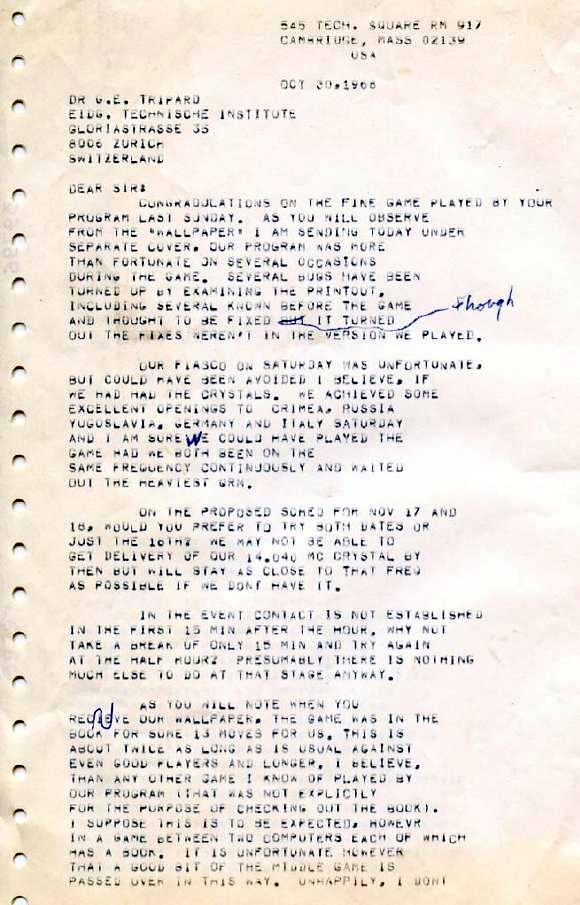 545 TECH. SQUARE RM 917
CAMBRIDGE, MASS 02139
USA
OCT 30,1968
DR G.E. TRIPARD
EIDG. TECHNISCHE INSTITUTE
GLORIASTRASSE 35
8006 ZURICH
SWITZERLAND
DEAR SIR:
CONGRADULATIONS ON THE FINE GAME PLAYED BY YOUR
PROGRAM LAST SUNDAY. AS YOU WILL OBSERVE
FROM THE "WALLPAPER" I AM SENDING TODAY UNDER
SEPARATE COVER, OUR PROGRAM WAS MORE
THAN FORTUNATE ON SEVERAL OCCASIONS
DURING THE GAME. SEVERAL BUGS HAVE BEEN
TURNED UP BY EXAMINING THE PRINTOUT,
INCLUDING SEVERAL KNOWN BEFORE THE GAME though
AND THOUGHT TO BE FIXED BUT IT TURNED
OUT THE FIXES WEREN'T IN THE VERSION WE PLAYED.
OUR FIASCO ON SATURDAY WAS UNFORTUNATE,
BUT COULD HAVE BEEN AVOIDED I BELIEVE, IF
WE HAD HAD THE CRYSTALS. WE ACHIEVED SOME
EXCELLENT OPENINGS TO CRIMEA, RUSSIA
YUGOSLAVIA, GERMANY AND ITALY SATURDAY
AND I AM SURE WE COULD HAVE PLAYED THE
GAME HAD WE BOTH BEEN ON THE
SAME FREQUENCY CONTINUOUSLY AND WAITED
OUT THE HEAVIEST QRM.
ON THE PROPOSED SCHED FOR NOV 17 AND
18, WOULD YOU PREFER TO TRY BOTH DATES OR
JUST THE 18TH? WE MAY NOT BE ABLE TO
GET DELIVERY OF OUR 14.040 MC CRYSTAL BY
THEN BUT WILL STAY AS CLOSE TO THAT FREQ
AS POSSIBLE IF WE DONT HAVE IT.
IN THE EVENT CONTACT IS NOT ESTABLISHED
IN THE FIRST 15 MIN AFTER THE HOUR, WHY NOT
TAKE A BREAK OF ONLY 15 MIN AND TRY AGAIN
AT THE HALF HOUR? PRESUMABLY THERE IS NOTHING
MUCH ELSE TO DO AT THAT STAGE ANYWAY.
AS YOU WILL NOTE WHEN YOU
RECIEVE OUR WALLPAPER, THE GAME WAS IN THE
BOOK FOR SOME 13 MOVES FOR US. THIS IS
ABOUT TWICE AS LONG AS IS USUAL AGAINST
EVEN GOOD PLAYERS AND LONGER, I BELIEVE,
THAN ANY OTHER GAME I KNOW OF PLAYED BY
OUR PROGRAM (THAT WAS NOT EXPLICTLY
FOR THE PURPOSE OF CHECKING OUT THE BOOK).
I SUPPOSE THIS IS TO BE EXPECTED, HOWEVR
IN A GAME BETWEEN TWO COMPUTERS EACH OF WHICH
HAS A BOOK. IT IS UNFORTUNATE HOWEVER
THAT A GOOD BIT OF THE MIDDLE GAME IS
PASSED OVER IN THIS WAY. UNHAPPILY, I DONT